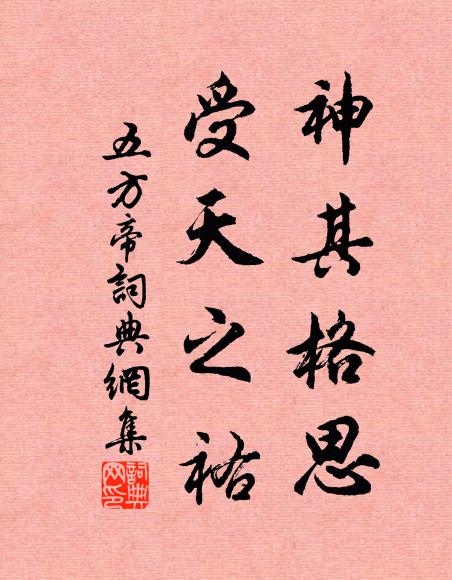 神其格思
受天之祐
五方帝詞典網集
詞典网印